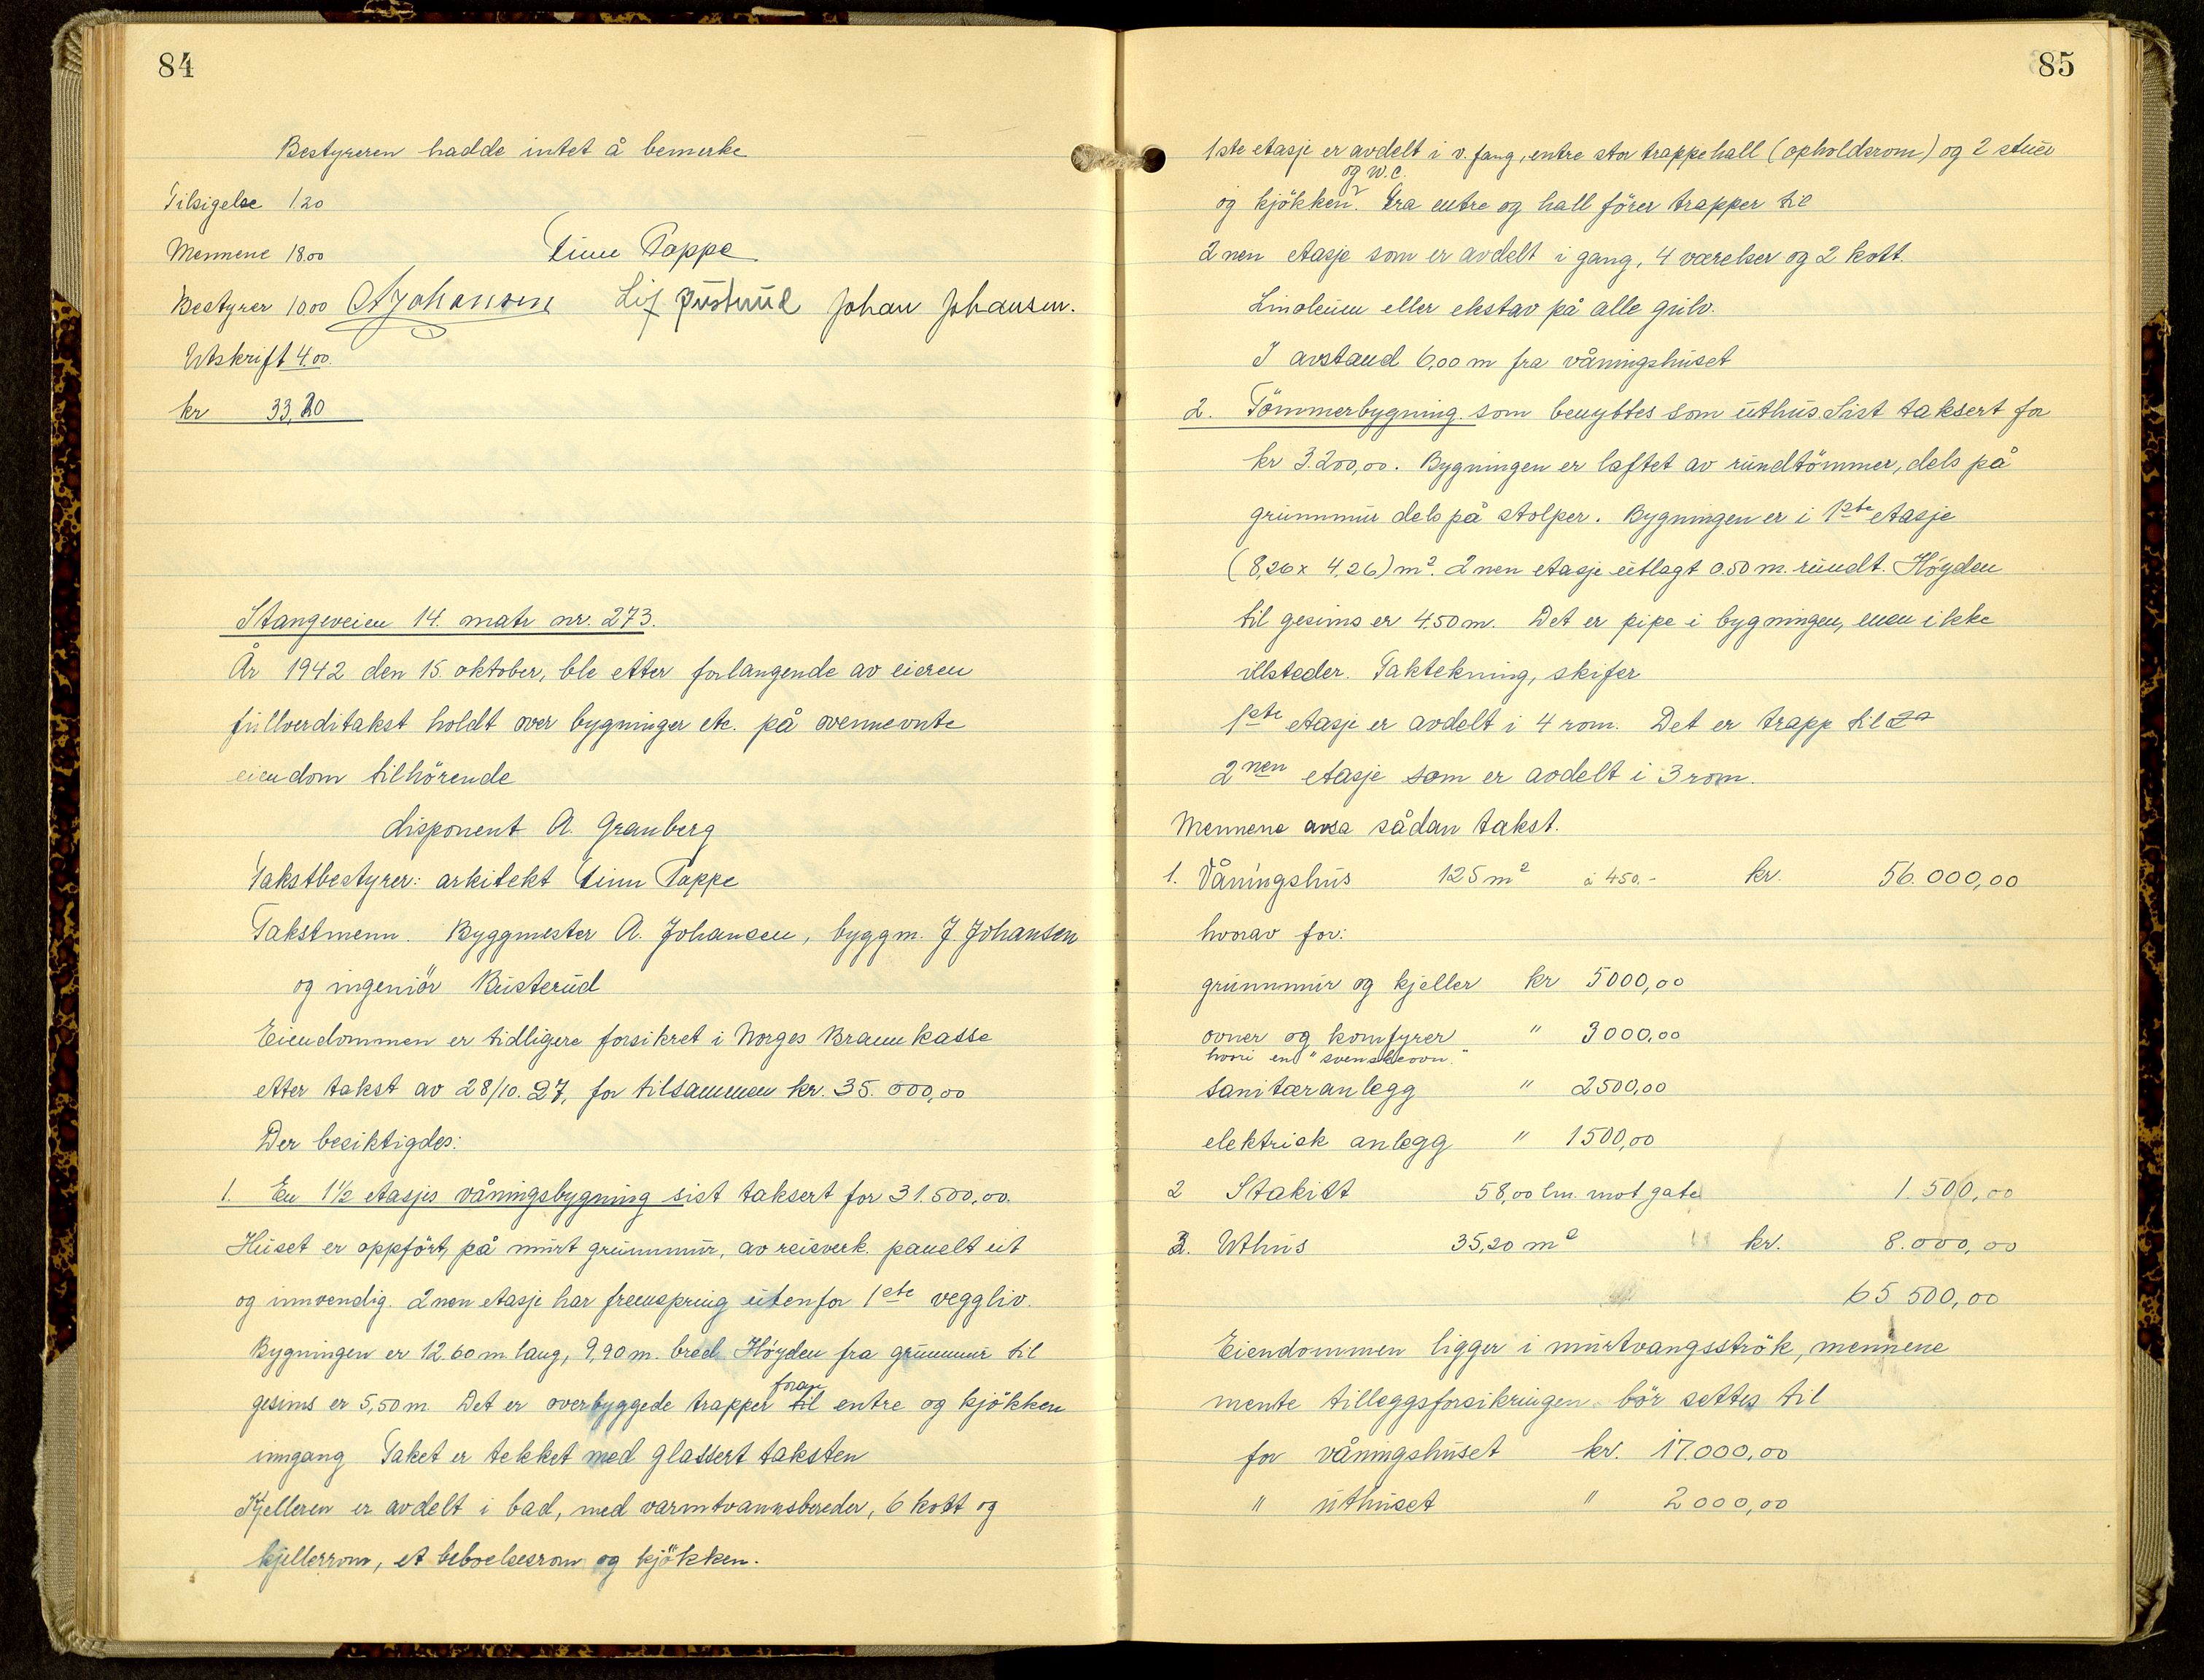 84
Bestyreren hadde intet å bemerke
Tilsigelse 1.20
Mennene 18.00 Finn Poppe
Bestyrer 10.00 A Johansen Leif Johan Johansen.
Utskrift 4.00.
kr 33,20
Stangeveien 14. matr nr. 273.
År 1942 den 15. oktober, ble etter forlangende av eieren
fullverditakst holdt over bygninger etc. på ovennevnte
eiendom tilhörende
disponent A. Granberg
Takstbestyrer: arkitekt Finn Poppe
Takstmenn. Byggmester A. Johansen, byggm. J Johansen
og ingeniör Busterud
Eiendommen er tidligere forsikret i Norges Brannkasse
etter takst av 28/10.27, for tilsammen kr. 35.000,00
Der besiktigdes:
1. En 1½ etasjes våningsbygning sist taksert for 31.500,00.
Huset er oppfört, på murt grunnmur, av reisverk. panelt ut
og innvendig. 2nen etasje har fremspring utenfor 1ste veggliv.
Bygningen er 12.60 m lang, 9,90 m. bred Höyden fra grunnmur til
foran
gesims er 5,50 m Det er overbyggede trapper til entre og kjökken
inngang Taket er tekket med glassert taksten
Kjelleren er avdelt i bad, med varmtvannsbereder, 6 kott og
kjellerrom, et beboelsesrom og kjökken.
85
1ste etasje er avdelt i v. fang, entre stor trappehall (opholdsrom) og 2 stuer
og W.C.
og kjökken. Fra entre og hall förer trapper til
2nen etasje som er avdelt i gang, 4 værelser og 2 kott.
Linoleum eller ekstav på alle gulv.
I avstand 6,00 m fra våningshuset
2. Tömmerbygning. som benyttes som uthus. Sist taksert for
kr 3.200,00. Bygningen er laftet av rundtömmer, dels på
grunnmur dels på stolper. Bygningen er i 1ste etasje
(8,26 x 4,26) m². 2nen etasje utlagt 0.50 m. rundt. Höyden
til gesims er 4.50 m. Det er pipe i bygningen, men ikke
illsteder. Taktekning, skifer
1ste etasje er avdelt i 4 rom. Det er trapp til
2nen etasje som er avdelt i 3 rom.
Mennene avsa sådan takst.
1. Våningshus 125 m² à 450.- kr. 56.000,00
hvorav for:
grunnmur og kjeller kr 5000,00
ovner og komfyrer " 3000,00
hvori en "svenskeovn."
sanitæranlegg " 2500,00
elektrisk anlegg " 1500,00
2 Stakitt 58,00 lm. mot gate 1.500,00
3. Uthus 35,20 m² kr. 8.000,00
65 500,00
Eiendommen ligger i murtvangsströk, mennene
mente tilleggsforsikringen bör settes til
for våningshuset kr. 17.000,00
" uthuset " 2000,00